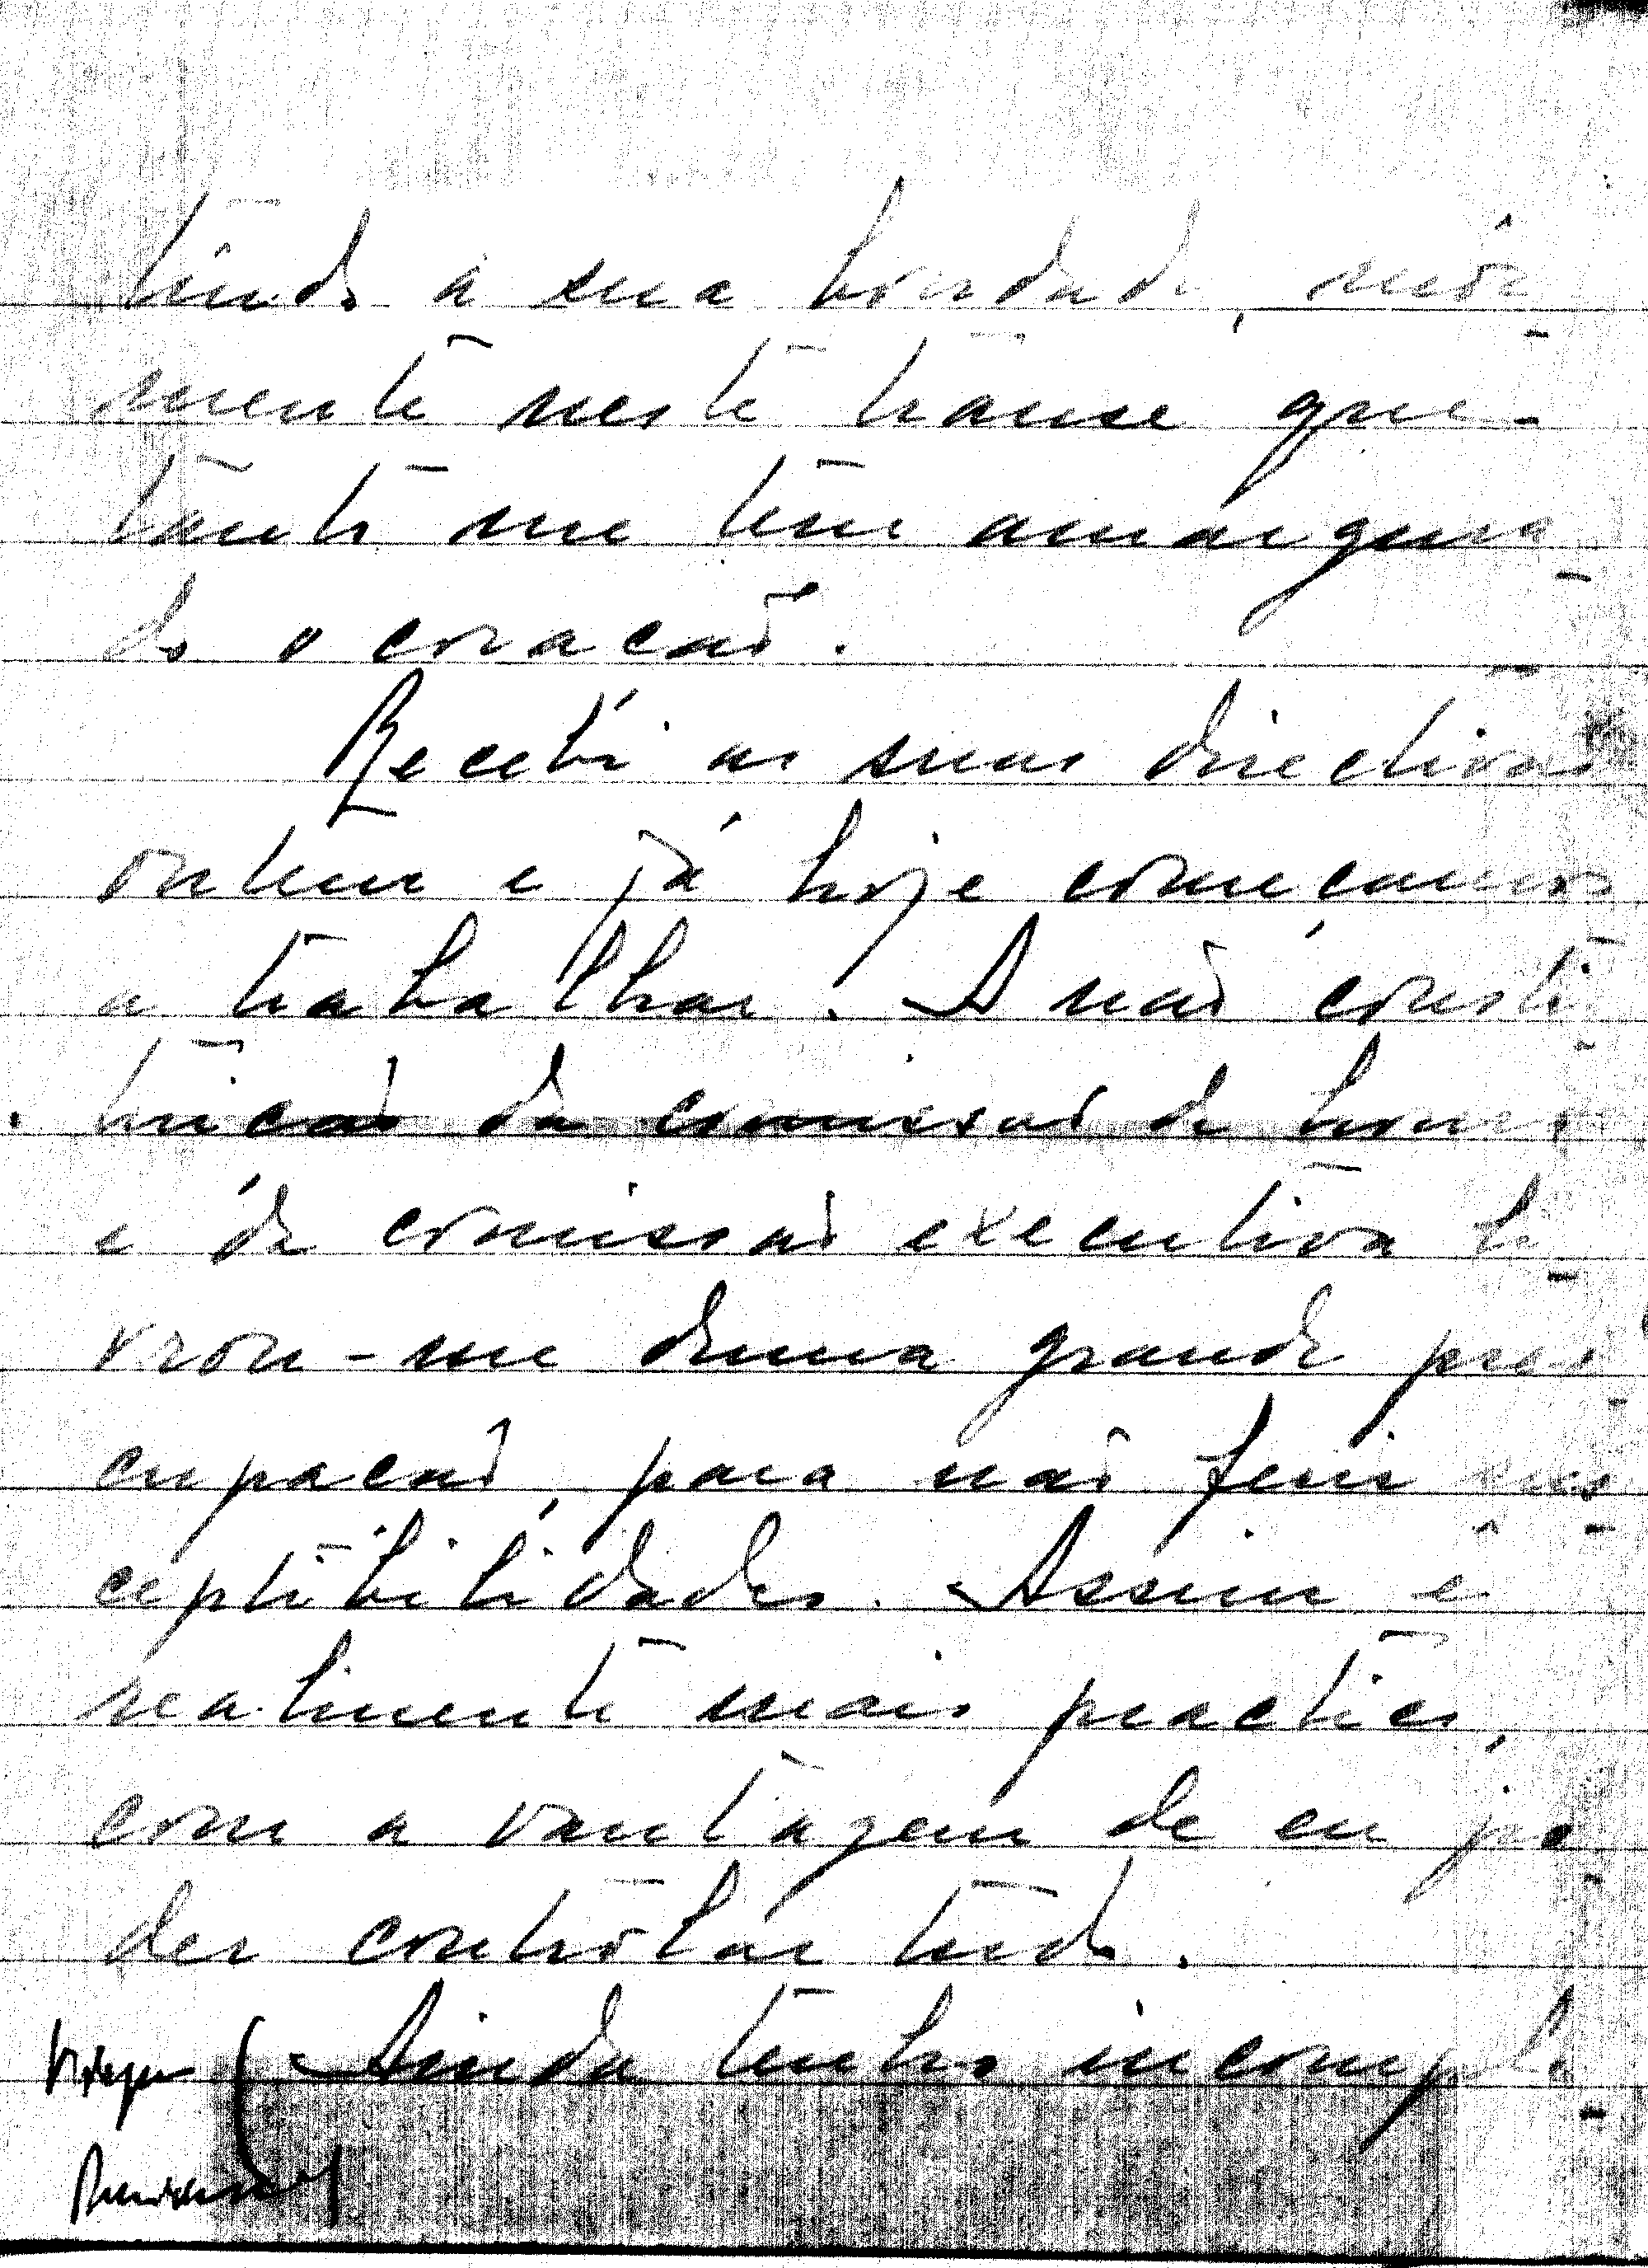 tindo a sua bondade, mór-
mente neste transe que
tanto me tem amargura-
do o coração.
Recebi as suas directivas
ontem e já hoje começamos
a trabalhar. A não consti-
tuicão da comissão de honra
e da comissão executiva li-
vrou-me duma grande preo-
cupacão, para não ferir sus-
ceptibilidades. Assim é
realmente mais practico,
com a vantagem de eu po-
der controlar tudo.
Ainda tenho incomple-